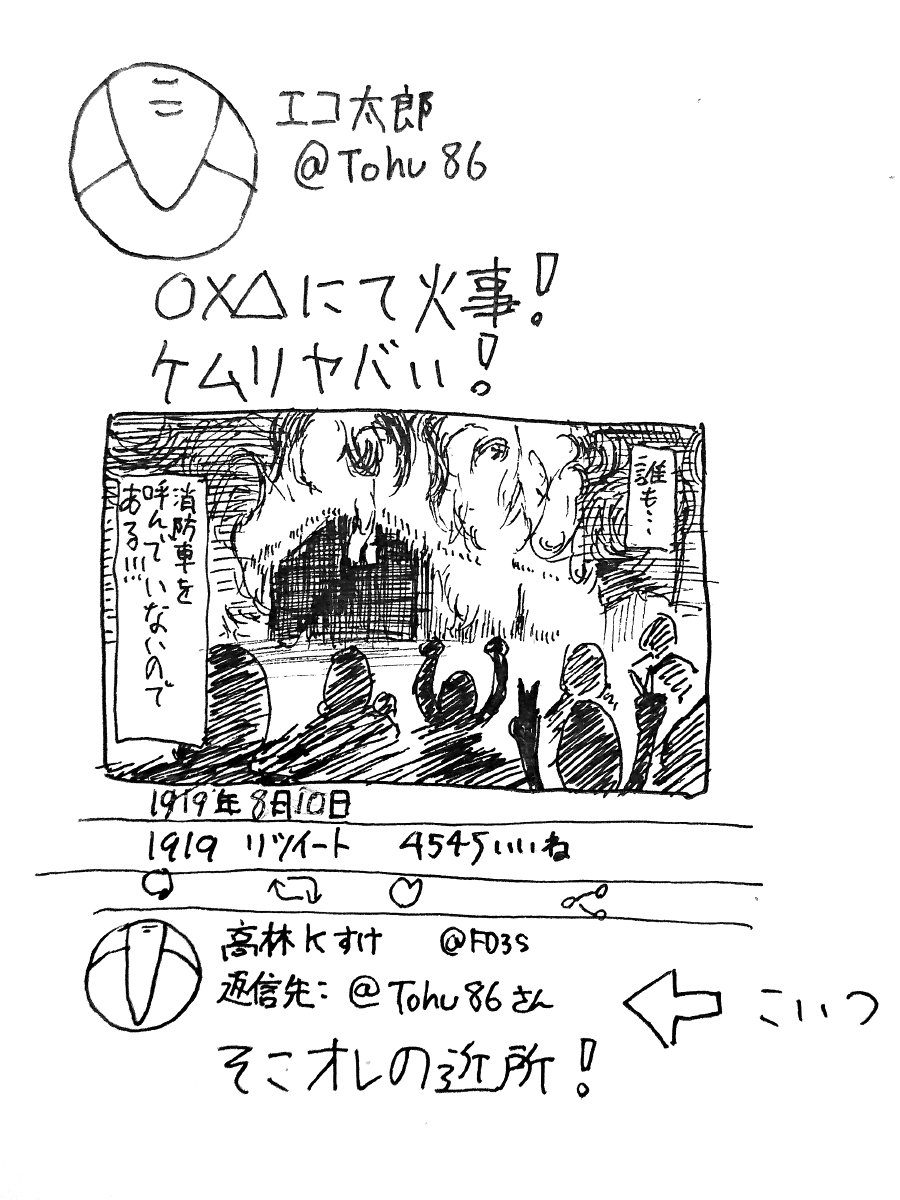 エコ太郎
@Tohu86
○×△にて火事!
ケムリヤバい!
誰も…
消防車を
呼んでいないので
ある!!!
1919年8月10日
1919 リツイート 4545いいね
高林Kすけ @FD3S
返信先:@Tohu86さん
そこオレの近所!
こいつ